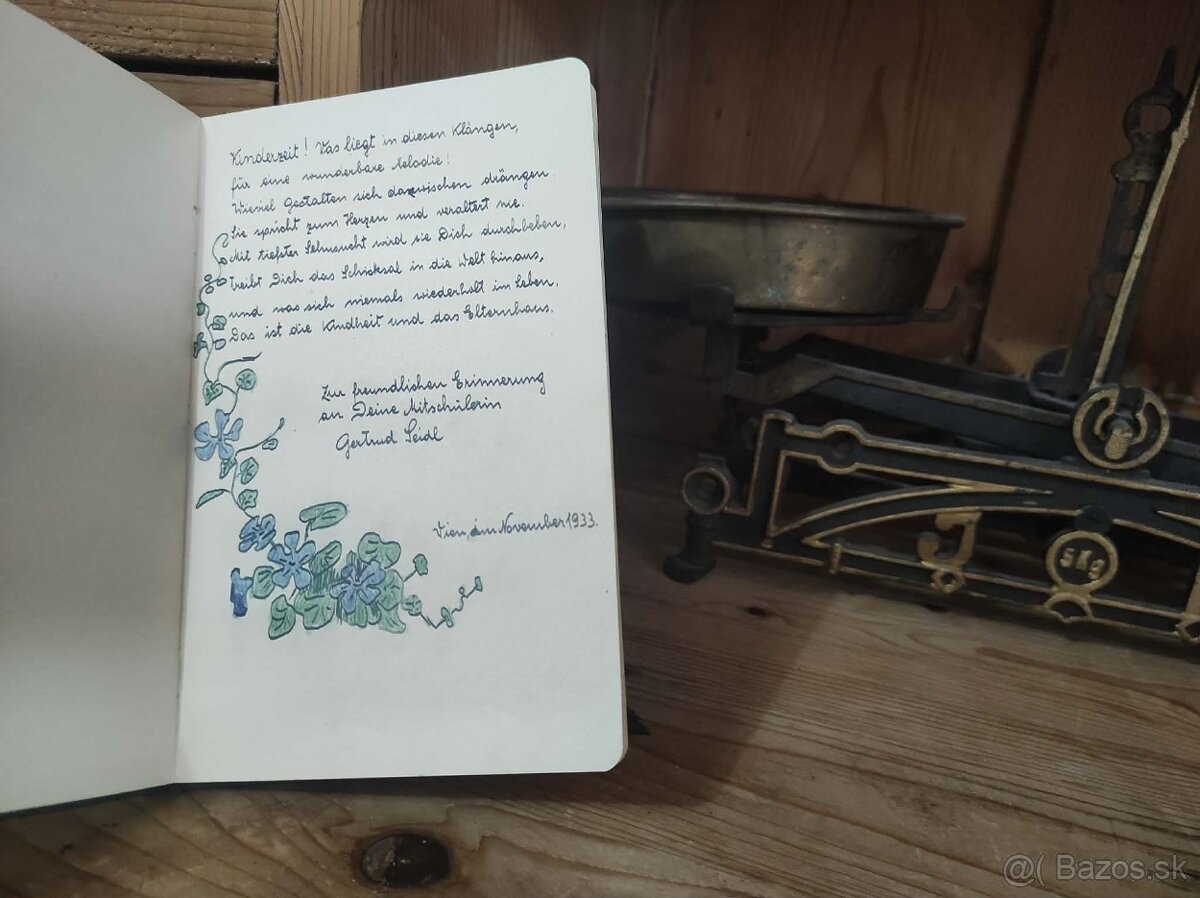 Kinderzeit! Was liegt in diesen Klängen,
für eine wunderbare Melodie!
Wieviel Gestalten sich dazwischen drängen.
Sie spricht zum Herzen und veraltert nie.
Mit tiefster Sehnsucht wird sie Dich durchbeben,
treibt Dich das Schicksal in die Welt hinaus,
und was sich niemals wiederholt im Leben,
Das ist die Kindheit und das Elternhaus.
Zur freundlichen Erinnerung
an Deine Mitschülerin
Gertrud Seidl
Wien, im November 1933.
J
5Kg
@( Bazos.sk